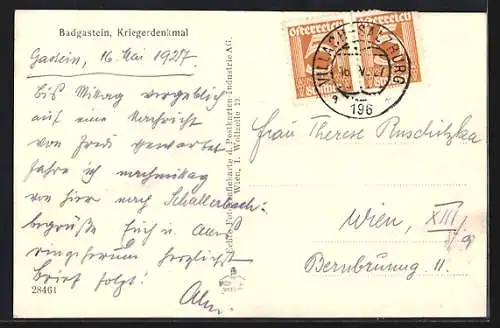 Badgastein, Kriegerdenkmal
Gastein, 16. Mai 1927.
bis Mittag vergeblich
auf eine Nachricht
von gewartet
fahre ich nachmittag
von hier nach Schallerbach.
begrüße Euch u.
herzlichst
Brief folgt!
28461
Echte Fotografiekarte d. Postkarten Industrie AG.
Wien, I. Wollzeile
Österreich
Österreich
VILLACH-SALZBURG
16 V 27
196
Frau Therese Ruschitzka
Wien, XIII/
Bernbrunng. 11.